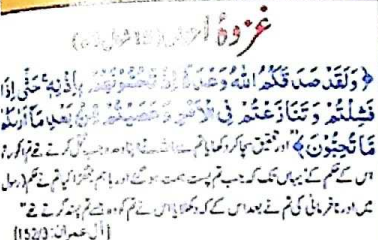 غزوۂ
﴿وَلَقَدْ صَدَقَكُمُ اللّٰهُ وَعْدَهٗ اِذْ تَحُسُّوْنَهُمْ بِاِذْنِهٖ حَتّٰى اِذَا
فَشِلْتُمْ وَتَنَازَعْتُمْ فِي الْاَمْرِ وَعَصَيْتُمْ مِنْ بَعْدِ مَا اَرٰىكُمْ
مَا تُحِبُّوْنَ﴾ اور تحقیق سچا کر دکھایا تم سے اللہ نے وعدہ جب قتل کرتے تھے تم
اس کے حکم سے یہاں تک کہ جب تم پست ہمت ہو گئے اور باہم جھگڑا کیا تم نے حکم رسول
میں اور نافرمانی کی تم نے بعد اس کے کہ دکھایا اس نے تم کو وہ جسے تم پسند کرتے تھے"
[آل عمران: 152/3]